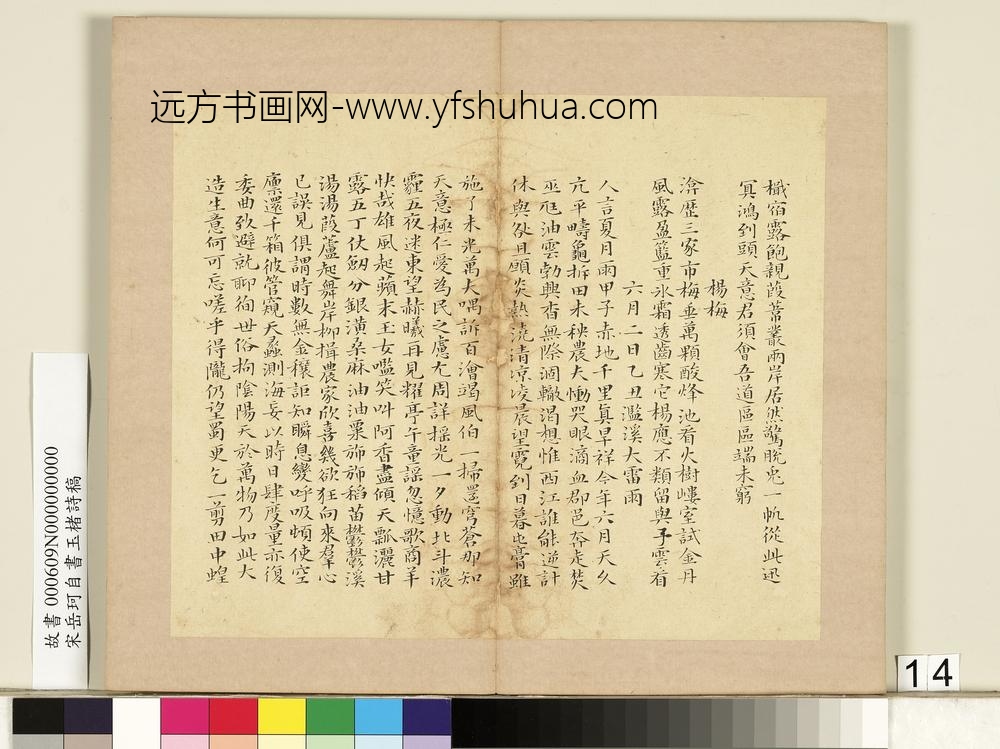 远方书画网-www.yfshuhua.com
檥宿露飽親葭葦叢兩岸居然驚脫兎一帆從此迅
冥鴻到頭天意君須會吾道區區端未窮
楊梅
渰歷三家市梅垂萬顆酸烽池看火樹嶁室試金丹
風露盈籃重氷霜透齒寒它楊應不類留與子雲看
六月二日乙丑濫溪大雷雨
人言夏月雨甲子赤地千里眞旱祥今年六月天久
亢平疇龜拆田未秧農夫慟哭眼滴血郡邑奔走焚
巫尫油雲勃興杳無際涸轍渴想惟西江誰能逆計
休與咎且願炎熱澆清凉凌晨望霓到日暮屯膏雖
施了未光萬夫喁訴百會竭風伯一掃還穹蒼那知
天意極仁愛為民之慮尤周詳揺光一夕動北斗濃
霾五夜迷東望赫曦再見耀亭午童謡忽憶歌商羊
快哉雄風起蘋末玉女嚂笑呌阿香盡傾天瓢灑甘
露五丁伏劒分銀潢桑麻油油粟斾斾稻苗鬱鬱溪
湯湯葭蘆起舞岸柳揖農家欣喜幾欲狂向來羣心
已誤見俱謂時數無金穰詎知瞬息變呼吸頓使空
廩還千箱彼管窺天蠡測海妄以時日肆度量亦復
委曲致避就聊徇世俗拘陰陽天於萬物乃如此大
造生意何可忘嗟乎得隴仍望蜀更乞一剪田中蝗
故書 000609N000000000
宋岳珂自書玉楮詩稿
14